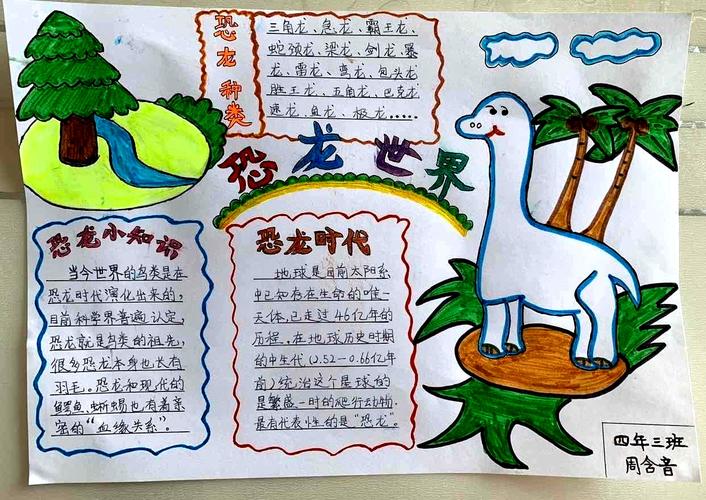 恐龙种类
三角龙、急龙、霸王龙、
蛇颈龙、梁龙、剑龙、暴
龙、雷龙、蛮龙、包头龙
胜王龙、五角龙、巴克龙
速龙、鱼龙、极龙.....
恐龙世界
恐龙小知识
当今世界的鸟类是在
恐龙时代演化出来的,
目前科学界普遍认定,
恐龙就是鸟类的祖先,
很多恐龙本身也长有
羽毛。恐龙和现代的
鳄鱼、蜥蜴也有着亲
密的“血缘关系”。
恐龙时代
地球是目前太阳系
中已知存在生命的唯一
天体,已走过46亿年的
历程。在地球历史时期
的中生代(2.52—0.66亿年
前)统治这个星球的
是繁盛一时的爬行动物.
最有代表性的是“恐龙”。
四年三班
周含音